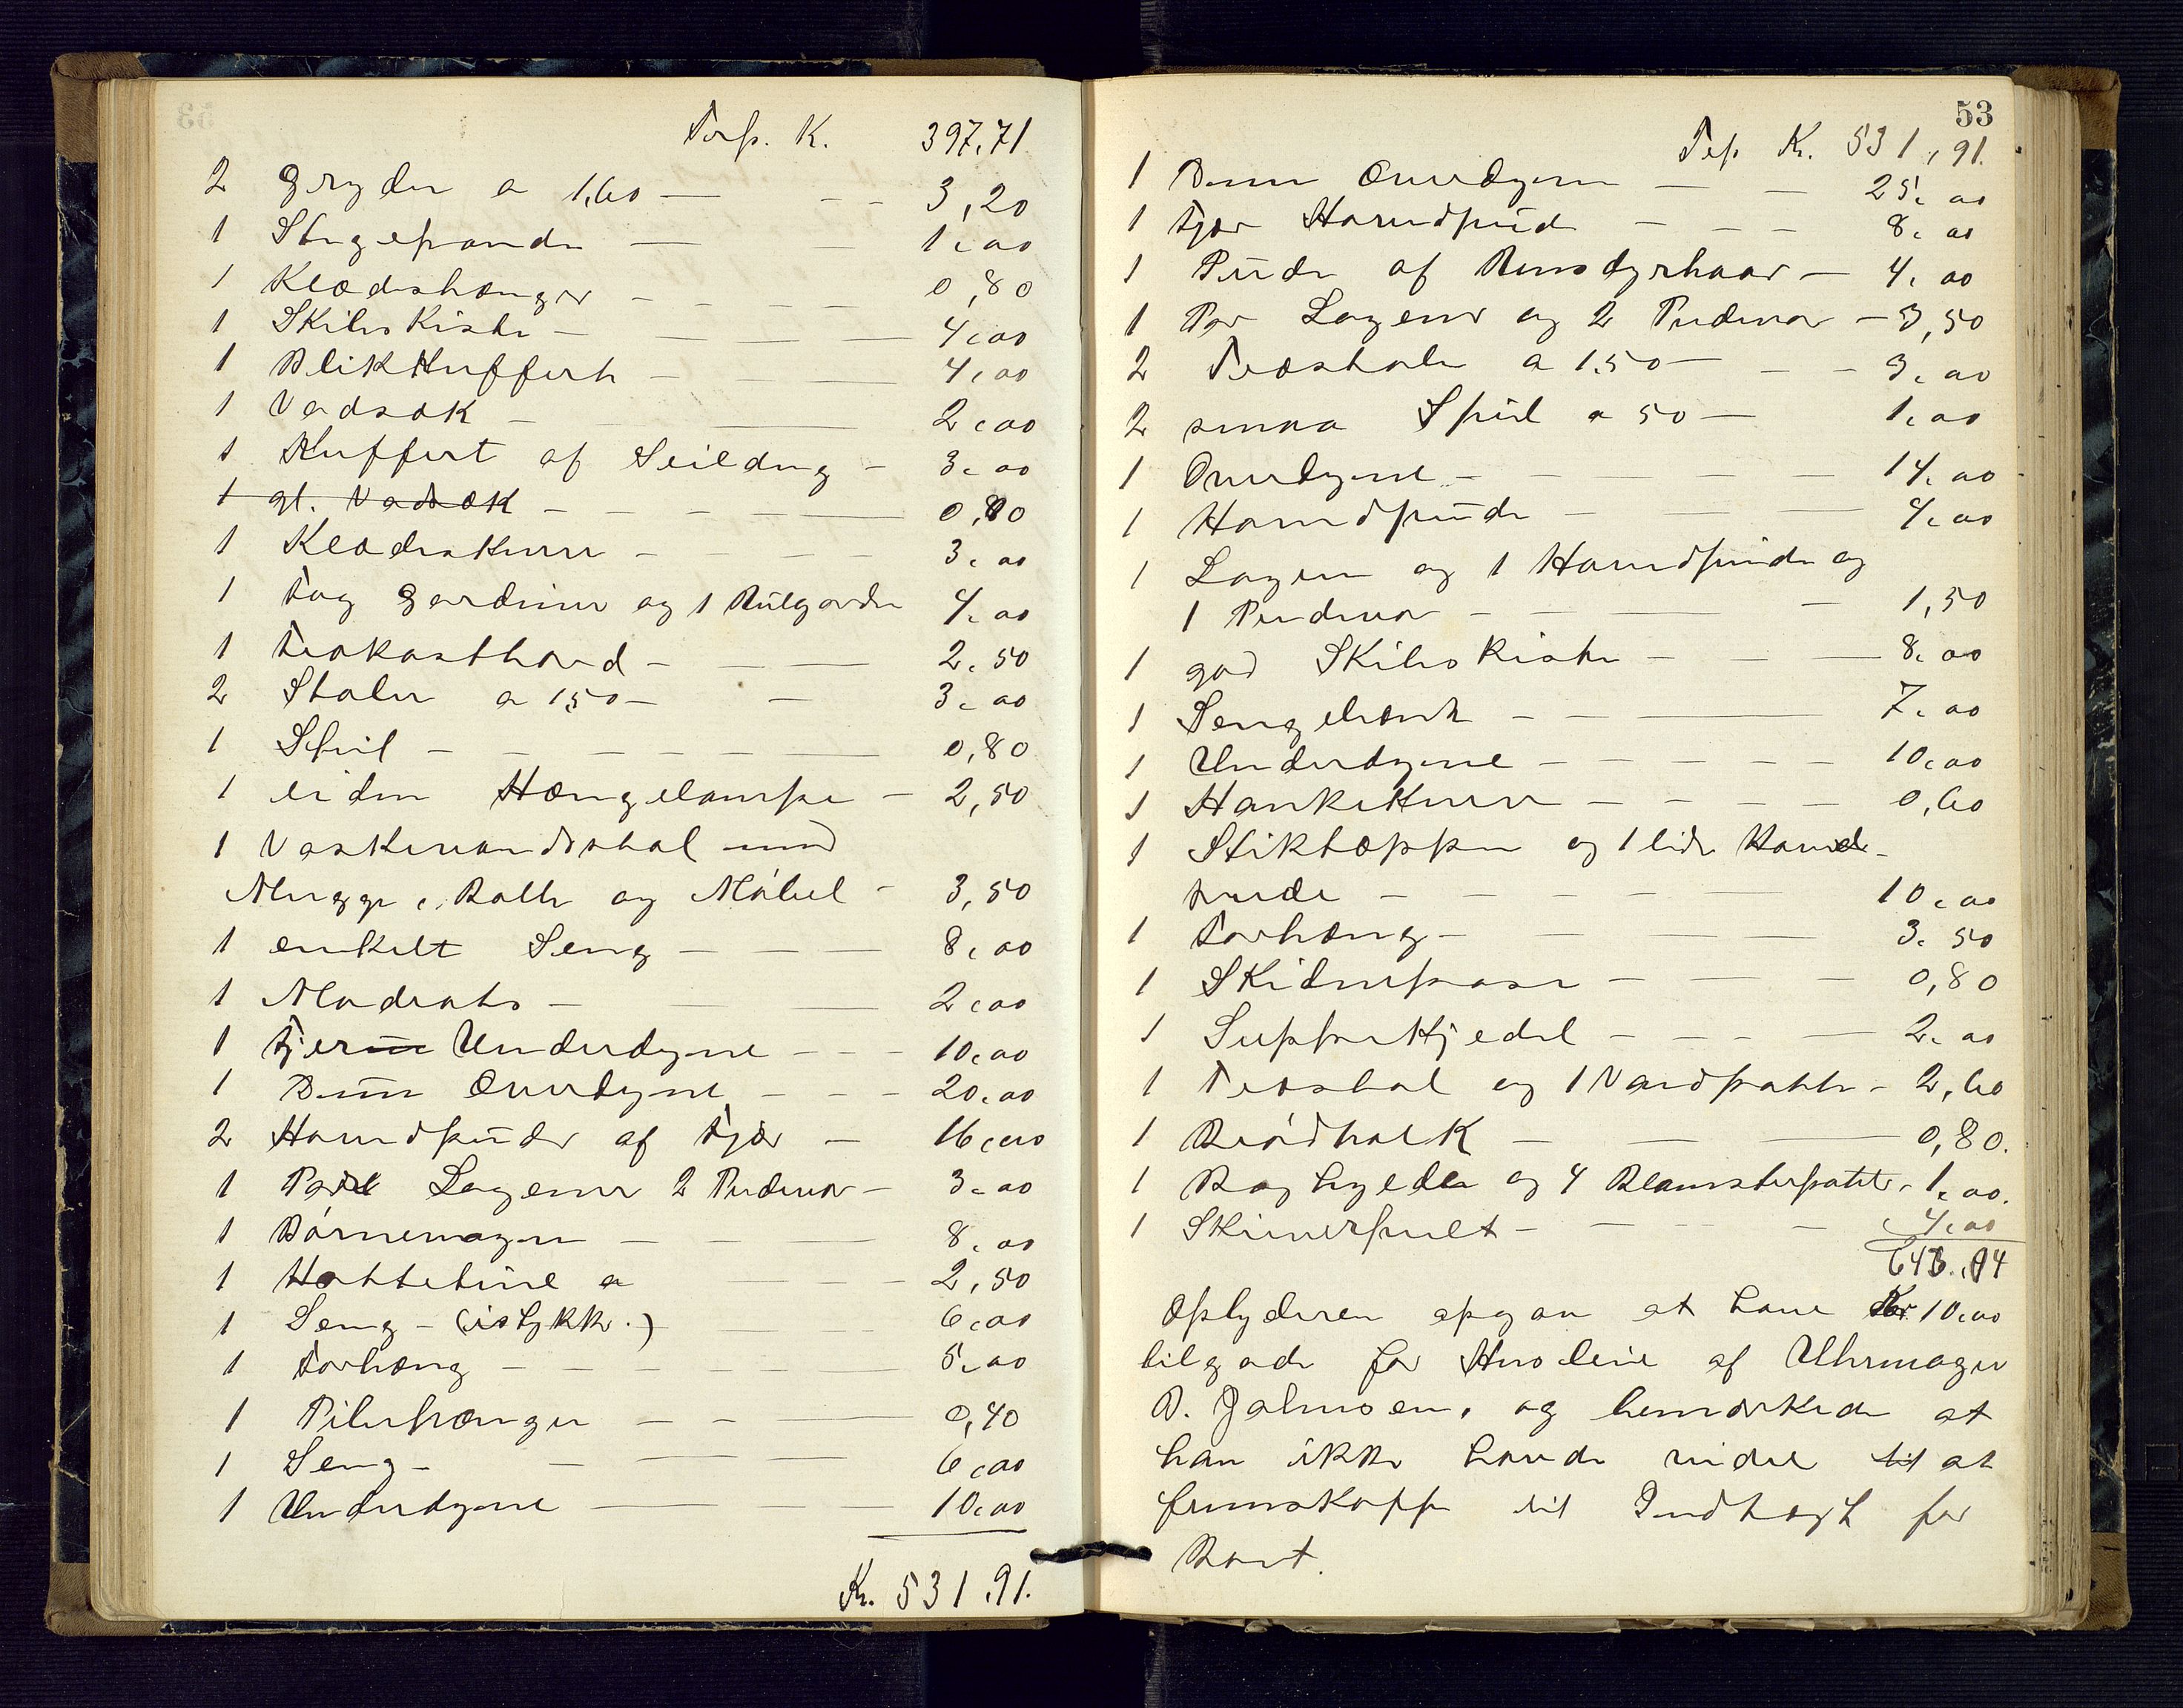 Trsp. K. 397,71
2 Gryder a 1,60 — 3,20
1 Stegepande — 1,00
1 Klædeshænger — 0,80
1 Skibskiste — 4,00
1 Blikkuffert — 4,00
1 Vadsæk — 2,00
1 Kuffert af Seildug — 3,00
1 gl. Vadsæk — 0,80
1 Klædeskurv — 3,00
1 Fag Gardiner og 1 Rulgardin 4,00
1 Frokostbord — 2,50
2 Stoler a 1,50 — 3,00
1 Speil — 0,80
1 liden Hængelampe — 2,50
1 Vaskevandsstol med
Mugge, Bolle og Møbel — 3,50
1 enkelt Seng — 8,00
1 Madrats — 2,00
1 Fjer Underdyne — 10,00
1 Duun Overdyne — 20,00
2 Hovedpuder af Fjær — 16,00
1 Par Lagener 2 Pudevar — 3,00
1 Børnevogn — 8,00
1 Hattetine a — 2,50
1 Seng — (istykker.) 6,00
1 Forhæng — 5,00
1 Pibehænger — 0,40
1 Seng — 6,00
1 Underdyne — 10,00
Kr. 531.91.
53
Tsp Kr. 531,91.
1 Duun Overdyne — 25,00
1 Fjær Hovedpude — 8,00
1 Pude af Rensdyrhaar — 4,00
1 Par Lagener og 2 Pudevar — 3,50
2 Træstole a 1.50 — 3,00
2 smaa Speil a 50 — 1,00
1 Overdyne — 14,00
1 Hovedpude — 4,00
1 Lagen og 1 Hovedpude og
1 Pudevar — 1,50
1 god Skibskiste — 8,00
1 Sengebænk — 7,00
1 Underdyne — 10,00
1 Hankekurv — 0,60
1 Stiktæppe og 1 lide Hoved-
pude — 10,00
1 Forhæng — 3.50
1 Skidenpose — 0,80
1 Suppekjedel — 2,00
1 Træstol og 1 Vandpotte — 2,60
1 Brødbræk — 0,80.
1 Boghylde og 4 Blomsterpotter — 1,00.
1 Skriverpult — 4,00
Opbyderen opgav at have Kr 10,00
tilgode for Husleie af Uhrmager
B. Johnsen, og bemærkede at
han ikke havde videre til at
fremskaffe til Indtægt for
Boet.